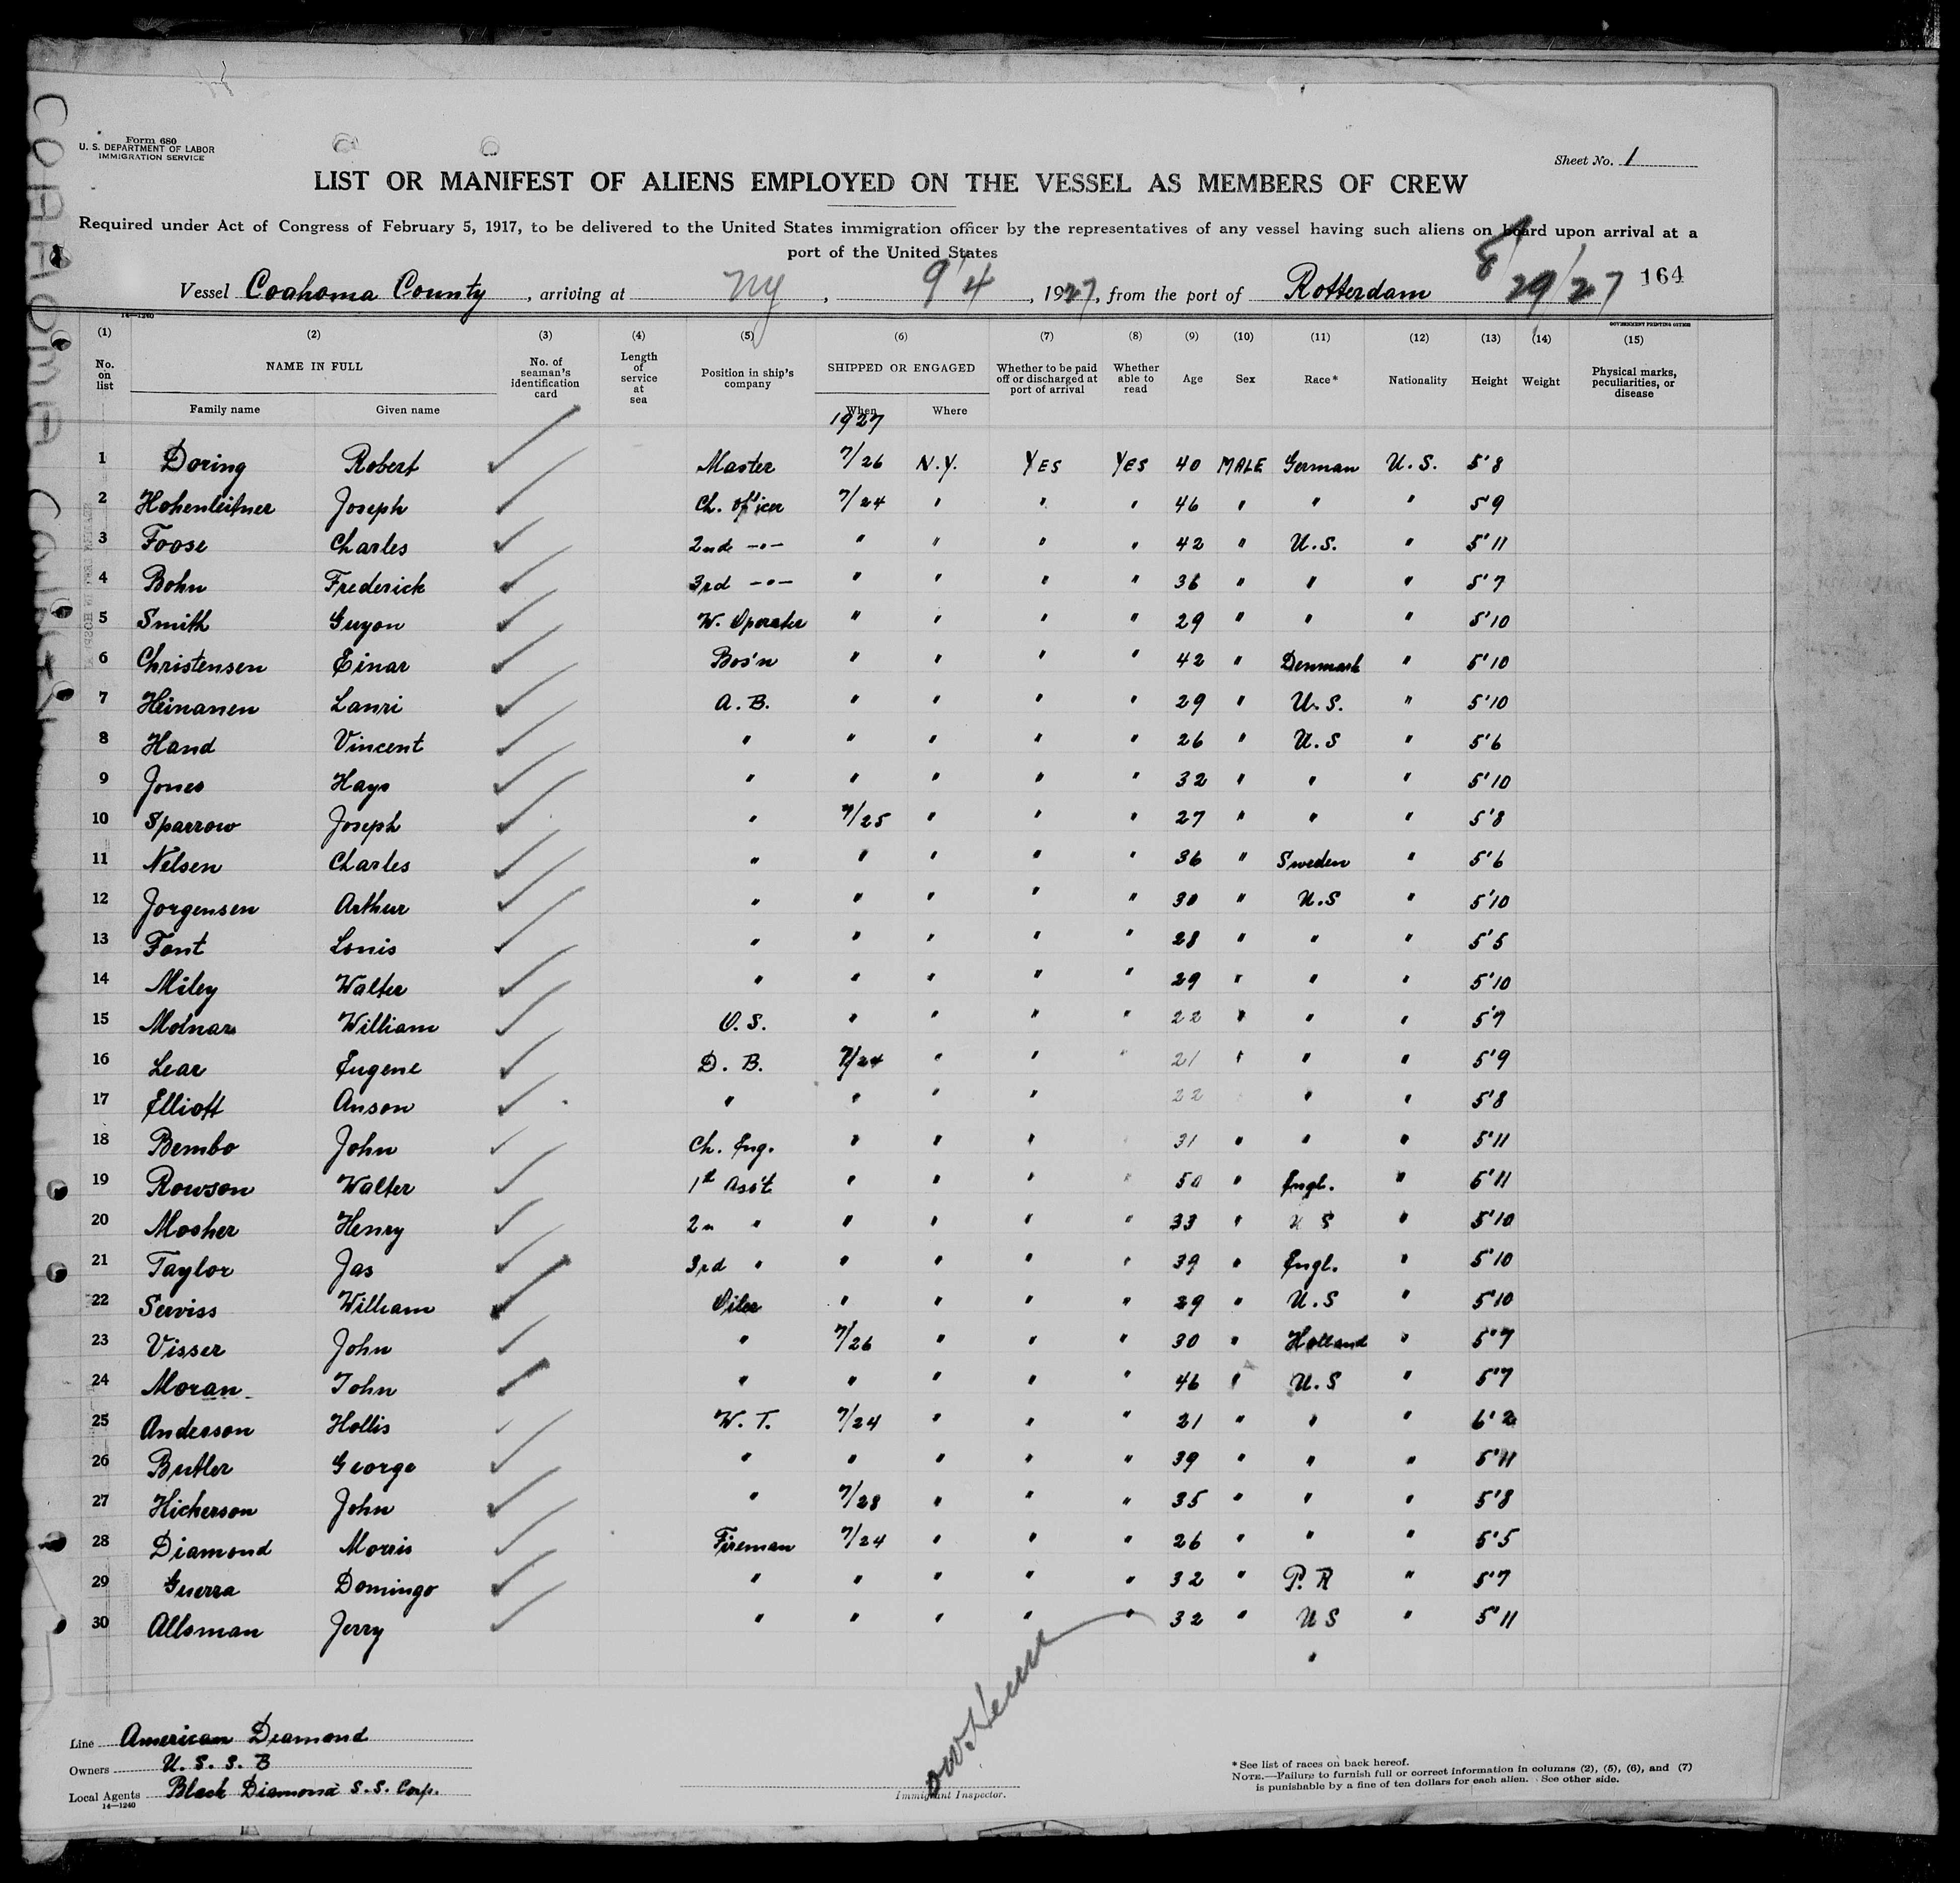 COAHOMA COUNTY
Form 680
U. S. DEPARTMENT OF LABOR
IMMIGRATION SERVICE
Sheet No. 1
LIST OR MANIFEST OF ALIENS EMPLOYED ON THE VESSEL AS MEMBERS OF CREW
Required under Act of Congress of February 5, 1917, to be delivered to the United States immigration officer by the representatives of any vessel having such aliens on board upon arrival at a
port of the United States
Vessel Coahoma County, arriving at NY, 9/4, 1927, from the port of Rotterdam 8/29/27 164
14—1240 GOVERNMENT PRINTING OFFICE
(1) (2) (3) (4) (5) (6) (7) (8) (9) (10) (11) (12) (13) (14) (15)
No. on list NAME IN FULL No. of seaman's identification card Length of service at sea Position in ship's company SHIPPED OR ENGAGED Whether to be paid off or discharged at port of arrival Whether able to read Age Sex Race* Nationality Height Weight Physical marks, peculiarities, or disease
Family name Given name When Where
1927
1 Doring Robert Master 7/26 N.Y. YES YES 40 MALE German U.S. 5'8
2 Hohenleitner Joseph Ch. Officer 7/24 " " " 46 " " " 5'9
3 Foose Charles 2nd -"- " " " " 42 " U.S. " 5'11
4 Bohn Frederick 3rd -"- " " " " 36 " " " 5'7
5 Smith Guyon W. Operater " " " " 29 " " " 5'10
6 Christensen Einar Bos'n " " " " 42 " Denmark " 5'10
7 Heinanen Lanri A.B. " " " " 29 " U.S. " 5'10
8 Hand Vincent " " " " " 26 " U.S " 5'6
9 Jones Hays " " " " " 32 " " " 5'10
10 Sparrow Joseph " 7/25 " " " 27 " " " 5'8
11 Nelsen Charles " " " " " 36 " Sweden " 5'6
12 Jorgensen Arthur " " " " " 30 " U.S " 5'10
13 Font Louis " " " " " 28 " " " 5'5
14 Miley Walter " " " " " 29 " " " 5'10
15 Molnar William O.S. " " " " 22 " " " 5'7
16 Lear Eugene D.B. 7/24 " " " 21 " " " 5'9
17 Elliott Anson " " " " 22 " " 5'8
18 Bembo John Ch. Eng. " " " " 31 " " " 5'11
19 Rowson Walter 1st Ass't " " " " 50 " Engl. " 5'11
20 Mosher Henry 2n " " " " " 33 " U S " 5'10
21 Taylor Jas 3rd " " " " " 39 " Engl. " 5'10
22 Serviss William Oiler " " " " 29 " U.S " 5'10
23 Visser John " 7/26 " " " 30 " Holland " 5'7
24 Moran John " " " " " 46 " U.S " 5'7
25 Anderson Hollis W.T. 7/24 " " " 21 " " " 6'2
26 Butler George " " " " " 39 " " " 5'11
27 Hickerson John " 7/28 " " " 35 " " " 5'8
28 Diamond Morris Fireman 7/24 " " " 26 " " " 5'5
29 Guerra Domingo " " " " " 32 " P.R " 5'7
30 Allsman Jerry " " " " " 32 " US " 5'11
"
Line American Diamond
Owners U.S.S.B
Local Agents Black Diamond S.S. Corp.
14—1240
Immigrant Inspector.
*See list of races on back hereof.
NOTE.—Failure to furnish full or correct information in columns (2), (5), (6), and (7)
is punishable by a fine of ten dollars for each alien. See other side.